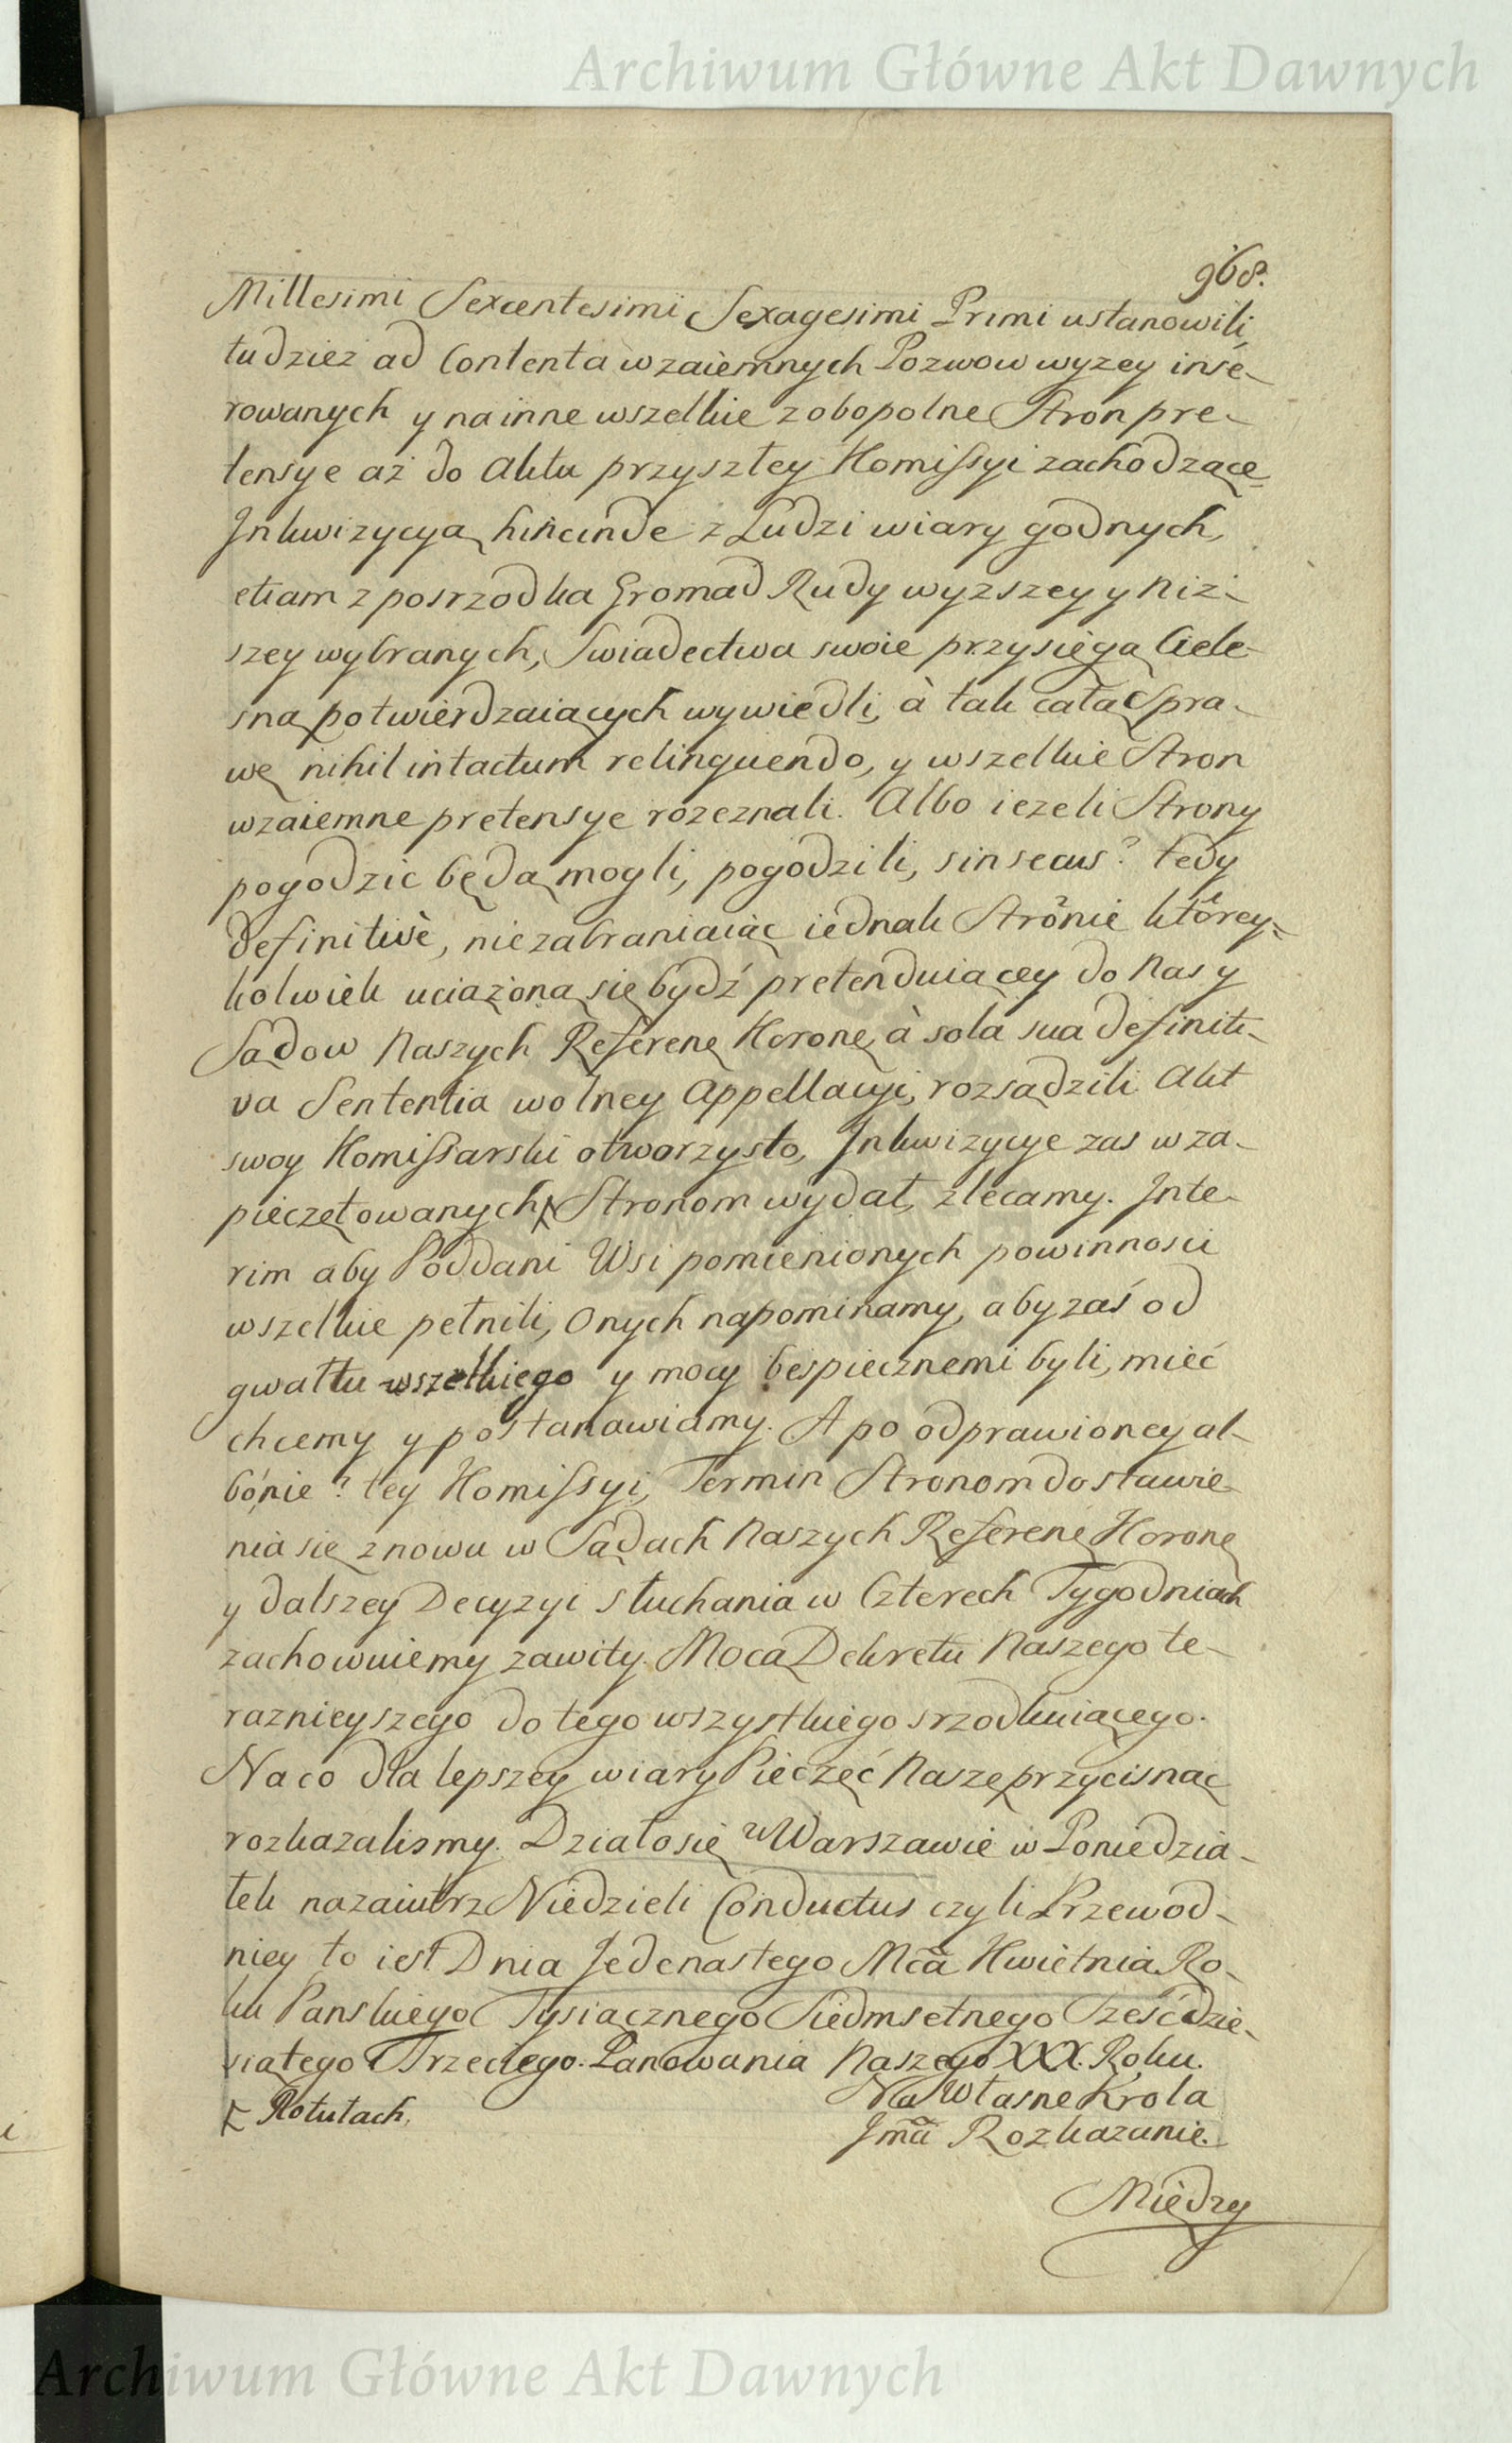 Archiwum Główne Akt Dawnych
968.
Millesimi Sexcentesimi Sexagesimi Primi ustanowili
tudziez ad Contenta wzaiemnych Pozwow wyzey inse-
rowanych y na inne wszelkie z obopolne Stron pre-
tensye aż do Aktu przyszłey Komissyi zachodzące
Inkwizycyą hincinde z Ludzi wiary godnych,
etiam z posrzodka Gromad Rudy wyzszey y Niz-
szey wybranych, Swiadectwa swoie przysięgą Ciele-
sną potwierdzaiących wywiedli, à tak całą Spra-
wę nihil intactum relinquendo, y wszelkie Stron
wzaiemne pretensye rozeznali. Albo iezeli Strony
pogodzic będą mogli, pogodzili, sin secus? tedy
definitivè, niezabraniaiąc iednak Strônie ktôrey-
kolwiek uciązoną się bydź pretenduiącey do Nas y
Sadow Naszych Referenę Koronę, à sola sua definiti-
va Sententia wolney Appellacyi, rozsądzili Akt
swoy Komissarski otworzysto, Inkwizycye zas w za-
pieczętowanych Stronom wydał, zlecamy. Inte-
rim aby Poddani Wsi pomienionych powinnosci
wszelkie pełnili, Onych napominamy, aby zaś od
gwałtu wszelkiego y mocy bespiecznemi byli, mieć
chcemy y postanawiamy. A po odprawioney al-
bo nie? tey Komissyi, Termin Stronom do stawie-
nia się znowu w Sądach Naszych Referenę Koronę
y dalszey Decyzyi słuchania w Czterech Tygodniach
zachowuiemy zawity. Mocą Dekretu Naszego te-
raznieyszego do tego wszystkiego srzodkuiącego.
Na co dla lepszey wiary Pieczęć Naszę przycisnąc
rozkazalismy. Działo się w Warszawie w Poniedzia-
łek nazaiutrz Niedzieli Conductus czyli Przewod-
niey to iest Dnia Jedenastego Mca Kwietnia Ro-
ku Panskiego Tysiącznego Siedmsetnego Sześćdzie-
siątego Trzeciego. Panowania Naszego XXX. Roku.
Na Własne Krola
Jmci Rozkazanie.
Rotułach.
Między
Archiwum Główne Akt Dawnych